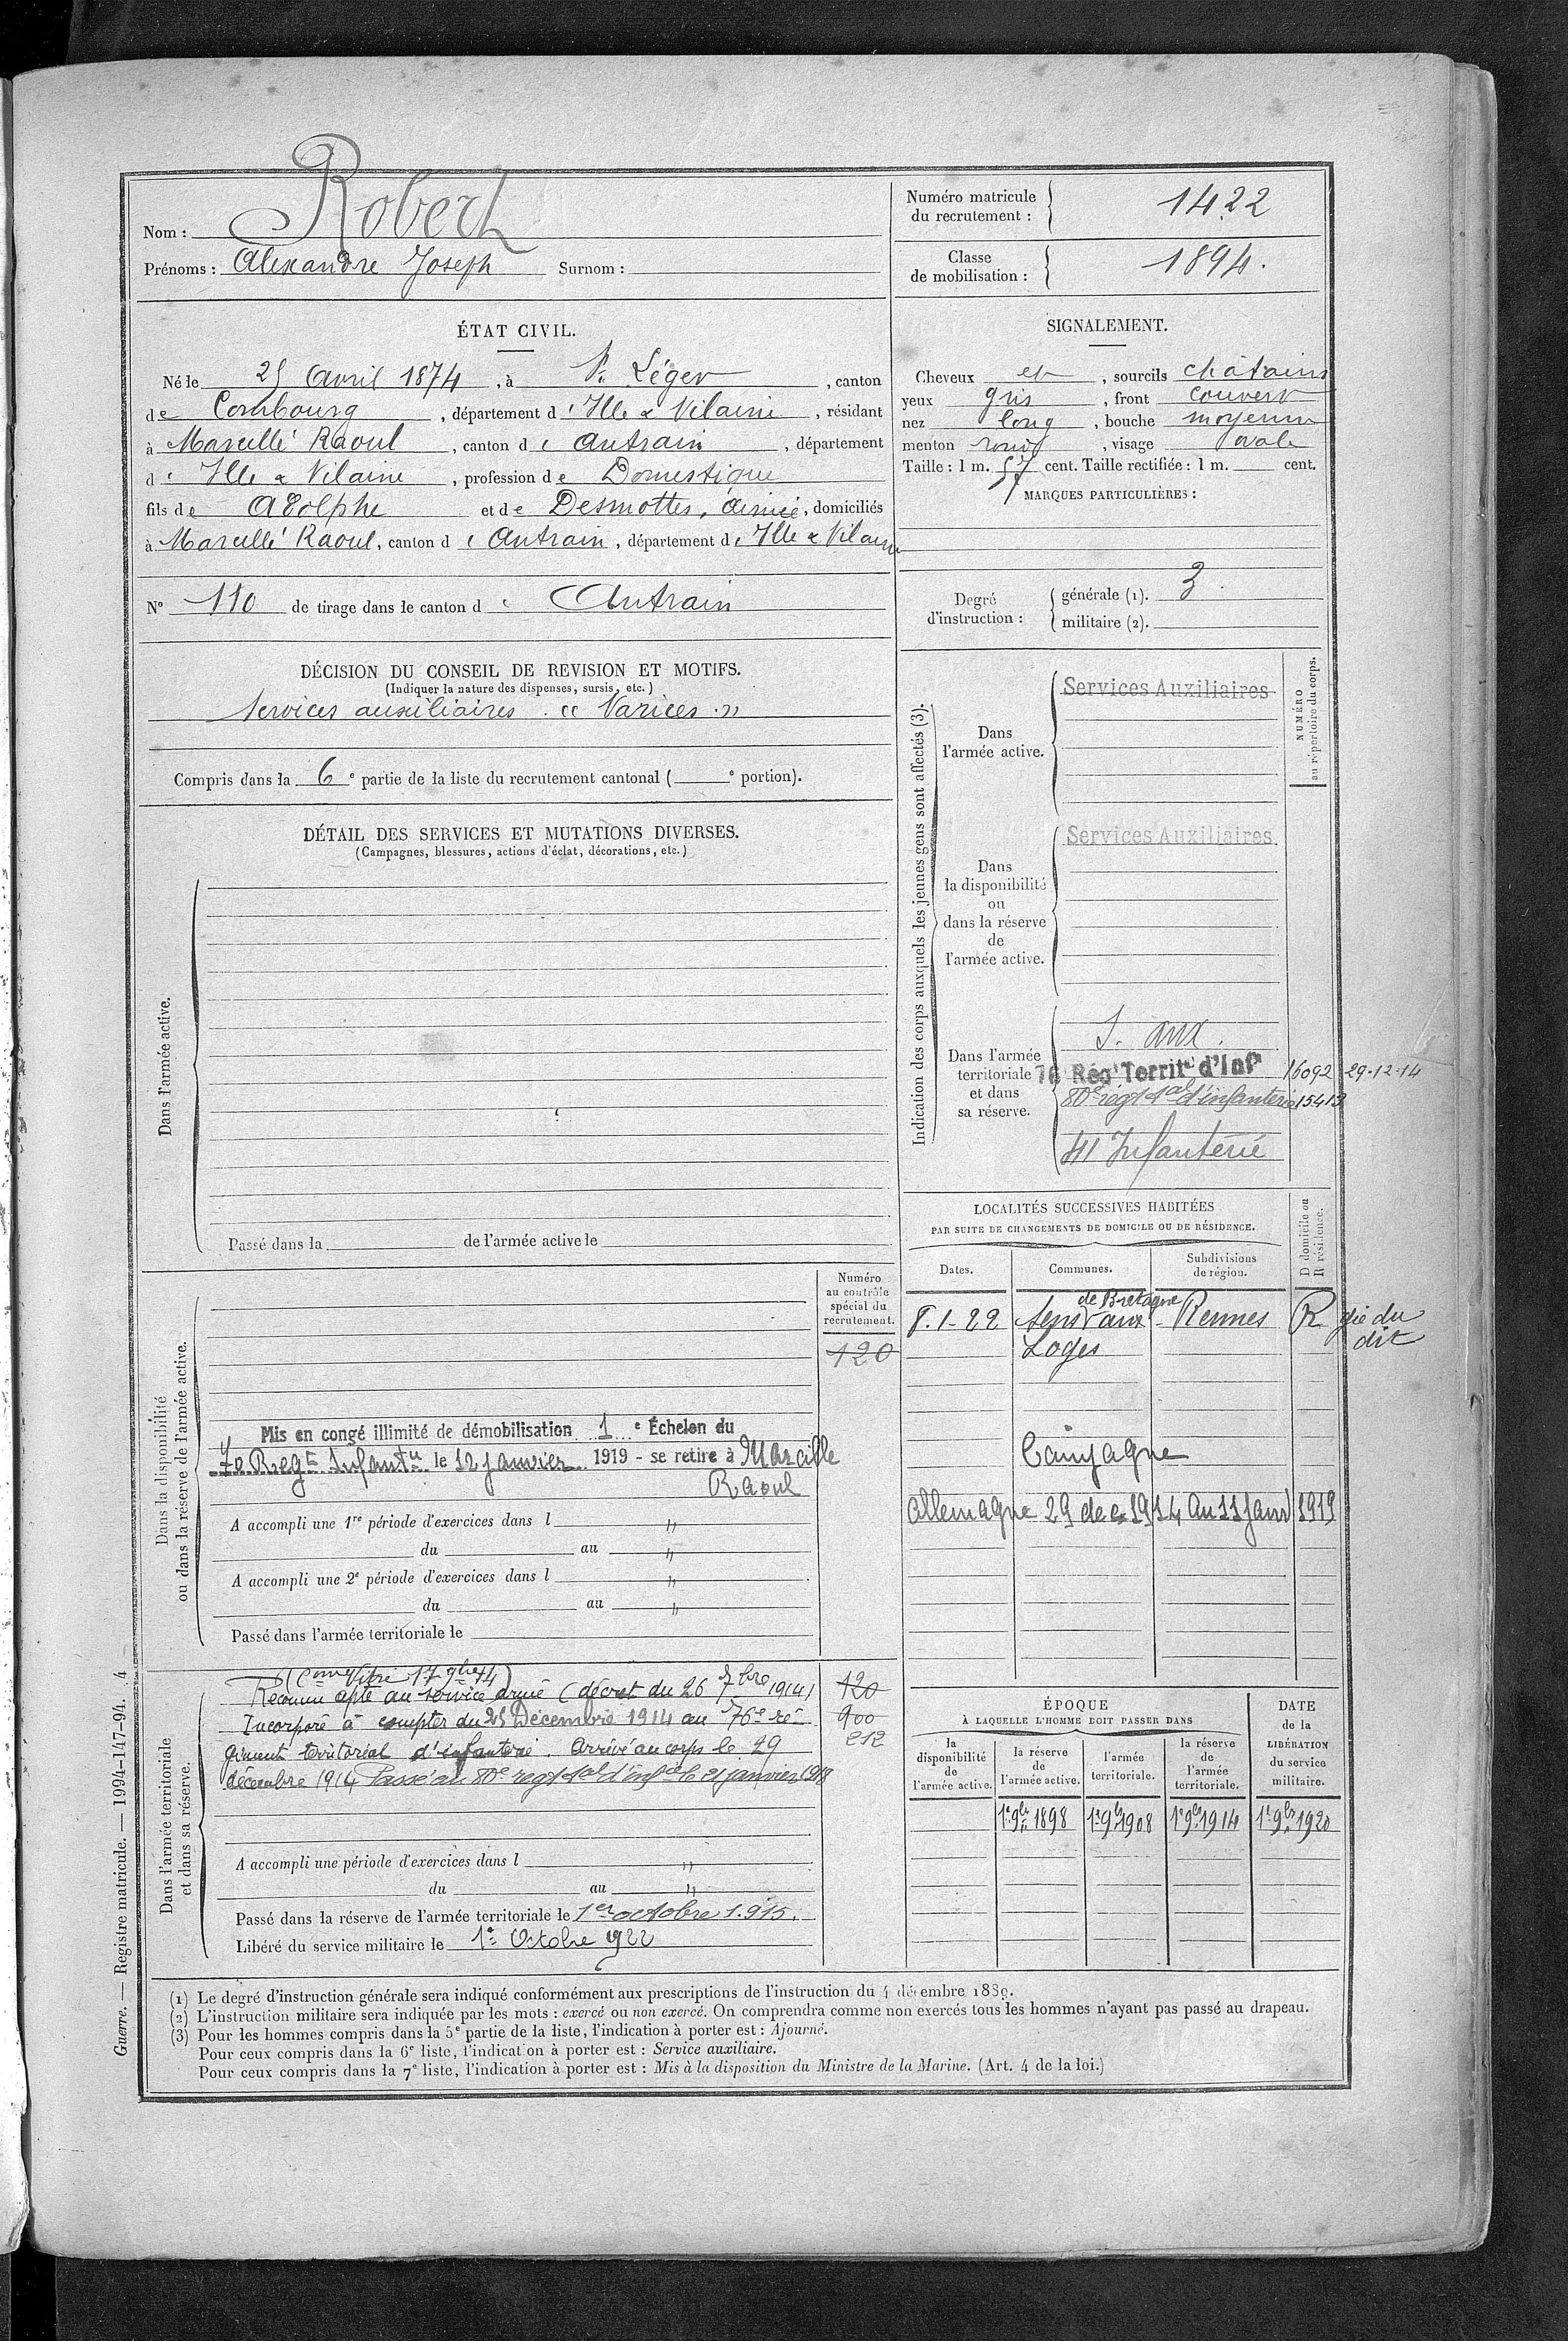 Nom : Robert
Prénoms : Alexandre Joseph Surnom :
Numéro matricule du recrutement : 1422
Classe de mobilisation : 1894.
ÉTAT CIVIL.
Né le 25 Avril 1874, à St Léger, canton
de Combourg, département d'Ille & Vilaine, résidant
à Marcillé Raoul, canton de Antrain, département
d'Ille & Vilaine, profession de Domestique
fils de Adolphe et de Desmottes, domiciliés
à Marcillé Raoul, canton d Antrain, département d'Ille & Vilaine
N° 110 de tirage dans le canton d Antrain
SIGNALEMENT.
Cheveux et, sourcils châtains
yeux gris, front couvert
nez long, bouche moyenne
menton rond, visage ovale
Taille : 1 m. 57 cent. Taille rectifiée : 1 m. cent.
MARQUES PARTICULIÈRES :
Degré d'instruction :
générale (1). 3.
militaire (2).
DÉCISION DU CONSEIL DE REVISION ET MOTIFS.
(Indiquer la nature des dispenses, sursis, etc.)
Services auxiliaires. « Varices. »
Compris dans la 6e partie de la liste du recrutement cantonal ( e portion).
DÉTAIL DES SERVICES ET MUTATIONS DIVERSES.
(Campagnes, blessures, actions d'éclat, décorations, etc.)
Dans l'armée active.
Passé dans la de l'armée active le
Indication des corps auxquels les jeunes gens sont affectés (3).
NUMÉRO au répertoire du corps.
Dans l'armée active.
Services Auxiliaires
Dans la disponibilité ou dans la réserve de l'armée active.
Services Auxiliaires
Dans l'armée territoriale et dans sa réserve.
S. aux.
76 Régt Territal d'Infie 16092 29-12-14
80e régt tal d'infanterie 15413
41 Infanterie
LOCALITÉS SUCCESSIVES HABITÉES
PAR SUITE DE CHANGEMENTS DE DOMICILE OU DE RÉSIDENCE.
Dates. Communes. Subdivisions de région. D domicile ou R résidence.
8.1-22 Sens de Bretagne Rennes R gie du dit
Loges
Campagne
Allemagne 29 dec 1914 au 11 Janv 1919
Dans la disponibilité ou dans la réserve de l'armée active.
Numéro au contrôle spécial du recrutement.
120
Mis en congé illimité de démobilisation 1e Échelon du
70 Regt Infantie le 12 janvier 1919 - se retire à Marcille
Raoul
A accompli une 1re période d'exercices dans l "
du au "
A accompli une 2e période d'exercices dans l "
du au "
Passé dans l'armée territoriale le
Dans l'armée territoriale et dans sa réserve.
(Com Vitré 17 9bre 14)
Reconnu apte au service armé (décret du 26 7bre 1914) 120
Incorporé à compter du 25 Décembre 1914 au 76e ré- 900
giment territorial d'infanterie. Arrivé au corps le 29 212
décembre 1914 Passé au 80e regt tal d'infie le 21 janvier 1918
A accompli une période d'exercices dans l "
du au "
Passé dans la réserve de l'armée territoriale le 1er octobre 1915.
Libéré du service militaire le 1er Octobre 1922
ÉPOQUE
À LAQUELLE L'HOMME DOIT PASSER DANS
la disponibilité de l'armée active. la réserve de l'armée active. l'armée territoriale. la réserve de l'armée territoriale.
DATE de la LIBÉRATION du service militaire.
1er 9bre 1898 1er 9bre 1908 1er 9bre 1914 1er 9bre 1920
(1) Le degré d'instruction générale sera indiqué conformément aux prescriptions de l'instruction du 4 décembre 1889.
(2) L'instruction militaire sera indiquée par les mots : exercé ou non exercé. On comprendra comme non exercés tous les hommes n'ayant pas passé au drapeau.
(3) Pour les hommes compris dans la 5e partie de la liste, l'indication à porter est : Ajourné.
Pour ceux compris dans la 6e liste, l'indication à porter est : Service auxiliaire.
Pour ceux compris dans la 7e liste, l'indication à porter est : Mis à la disposition du Ministre de la Marine. (Art. 4 de la loi.)
Guerre. — Registre matricule. — 1994-147-94. 4